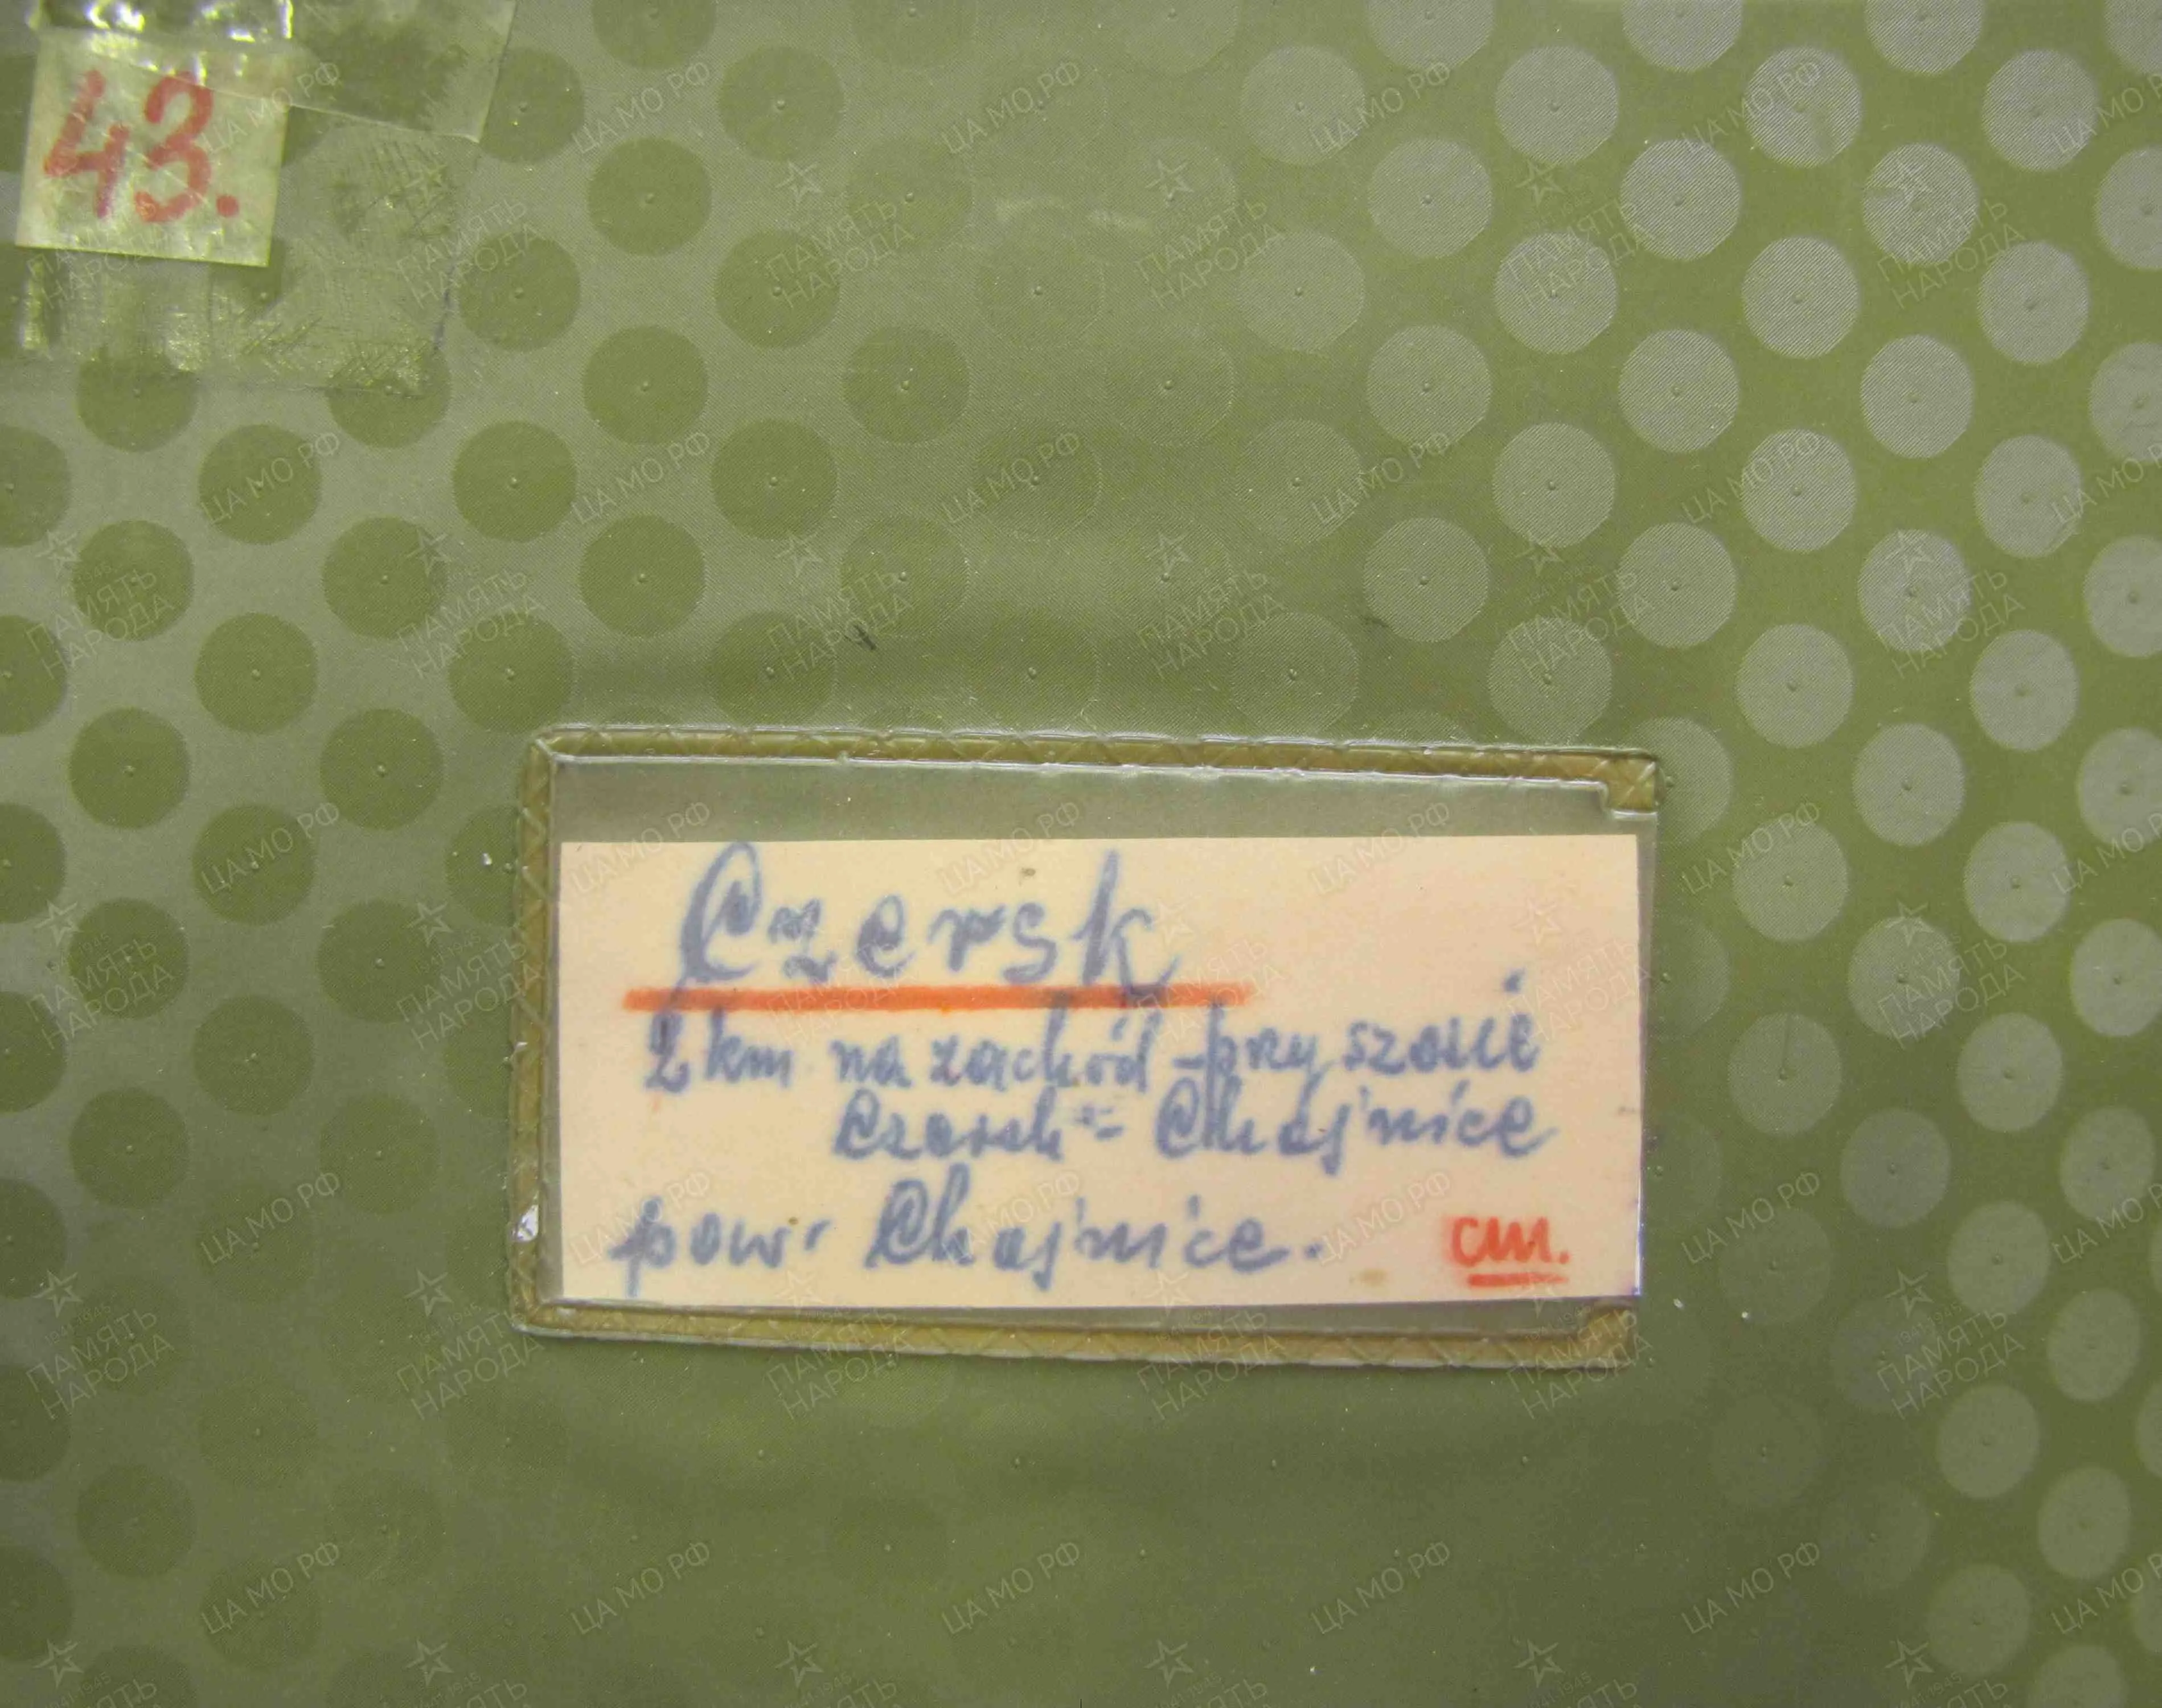 43.
Czersk
2 km na zachód - przy szosie
Czersk - Chojnice
pow. Chojnice.
cm.
ЦА МО РФ
ПАМЯТЬ
НАРОДА
1941-1945